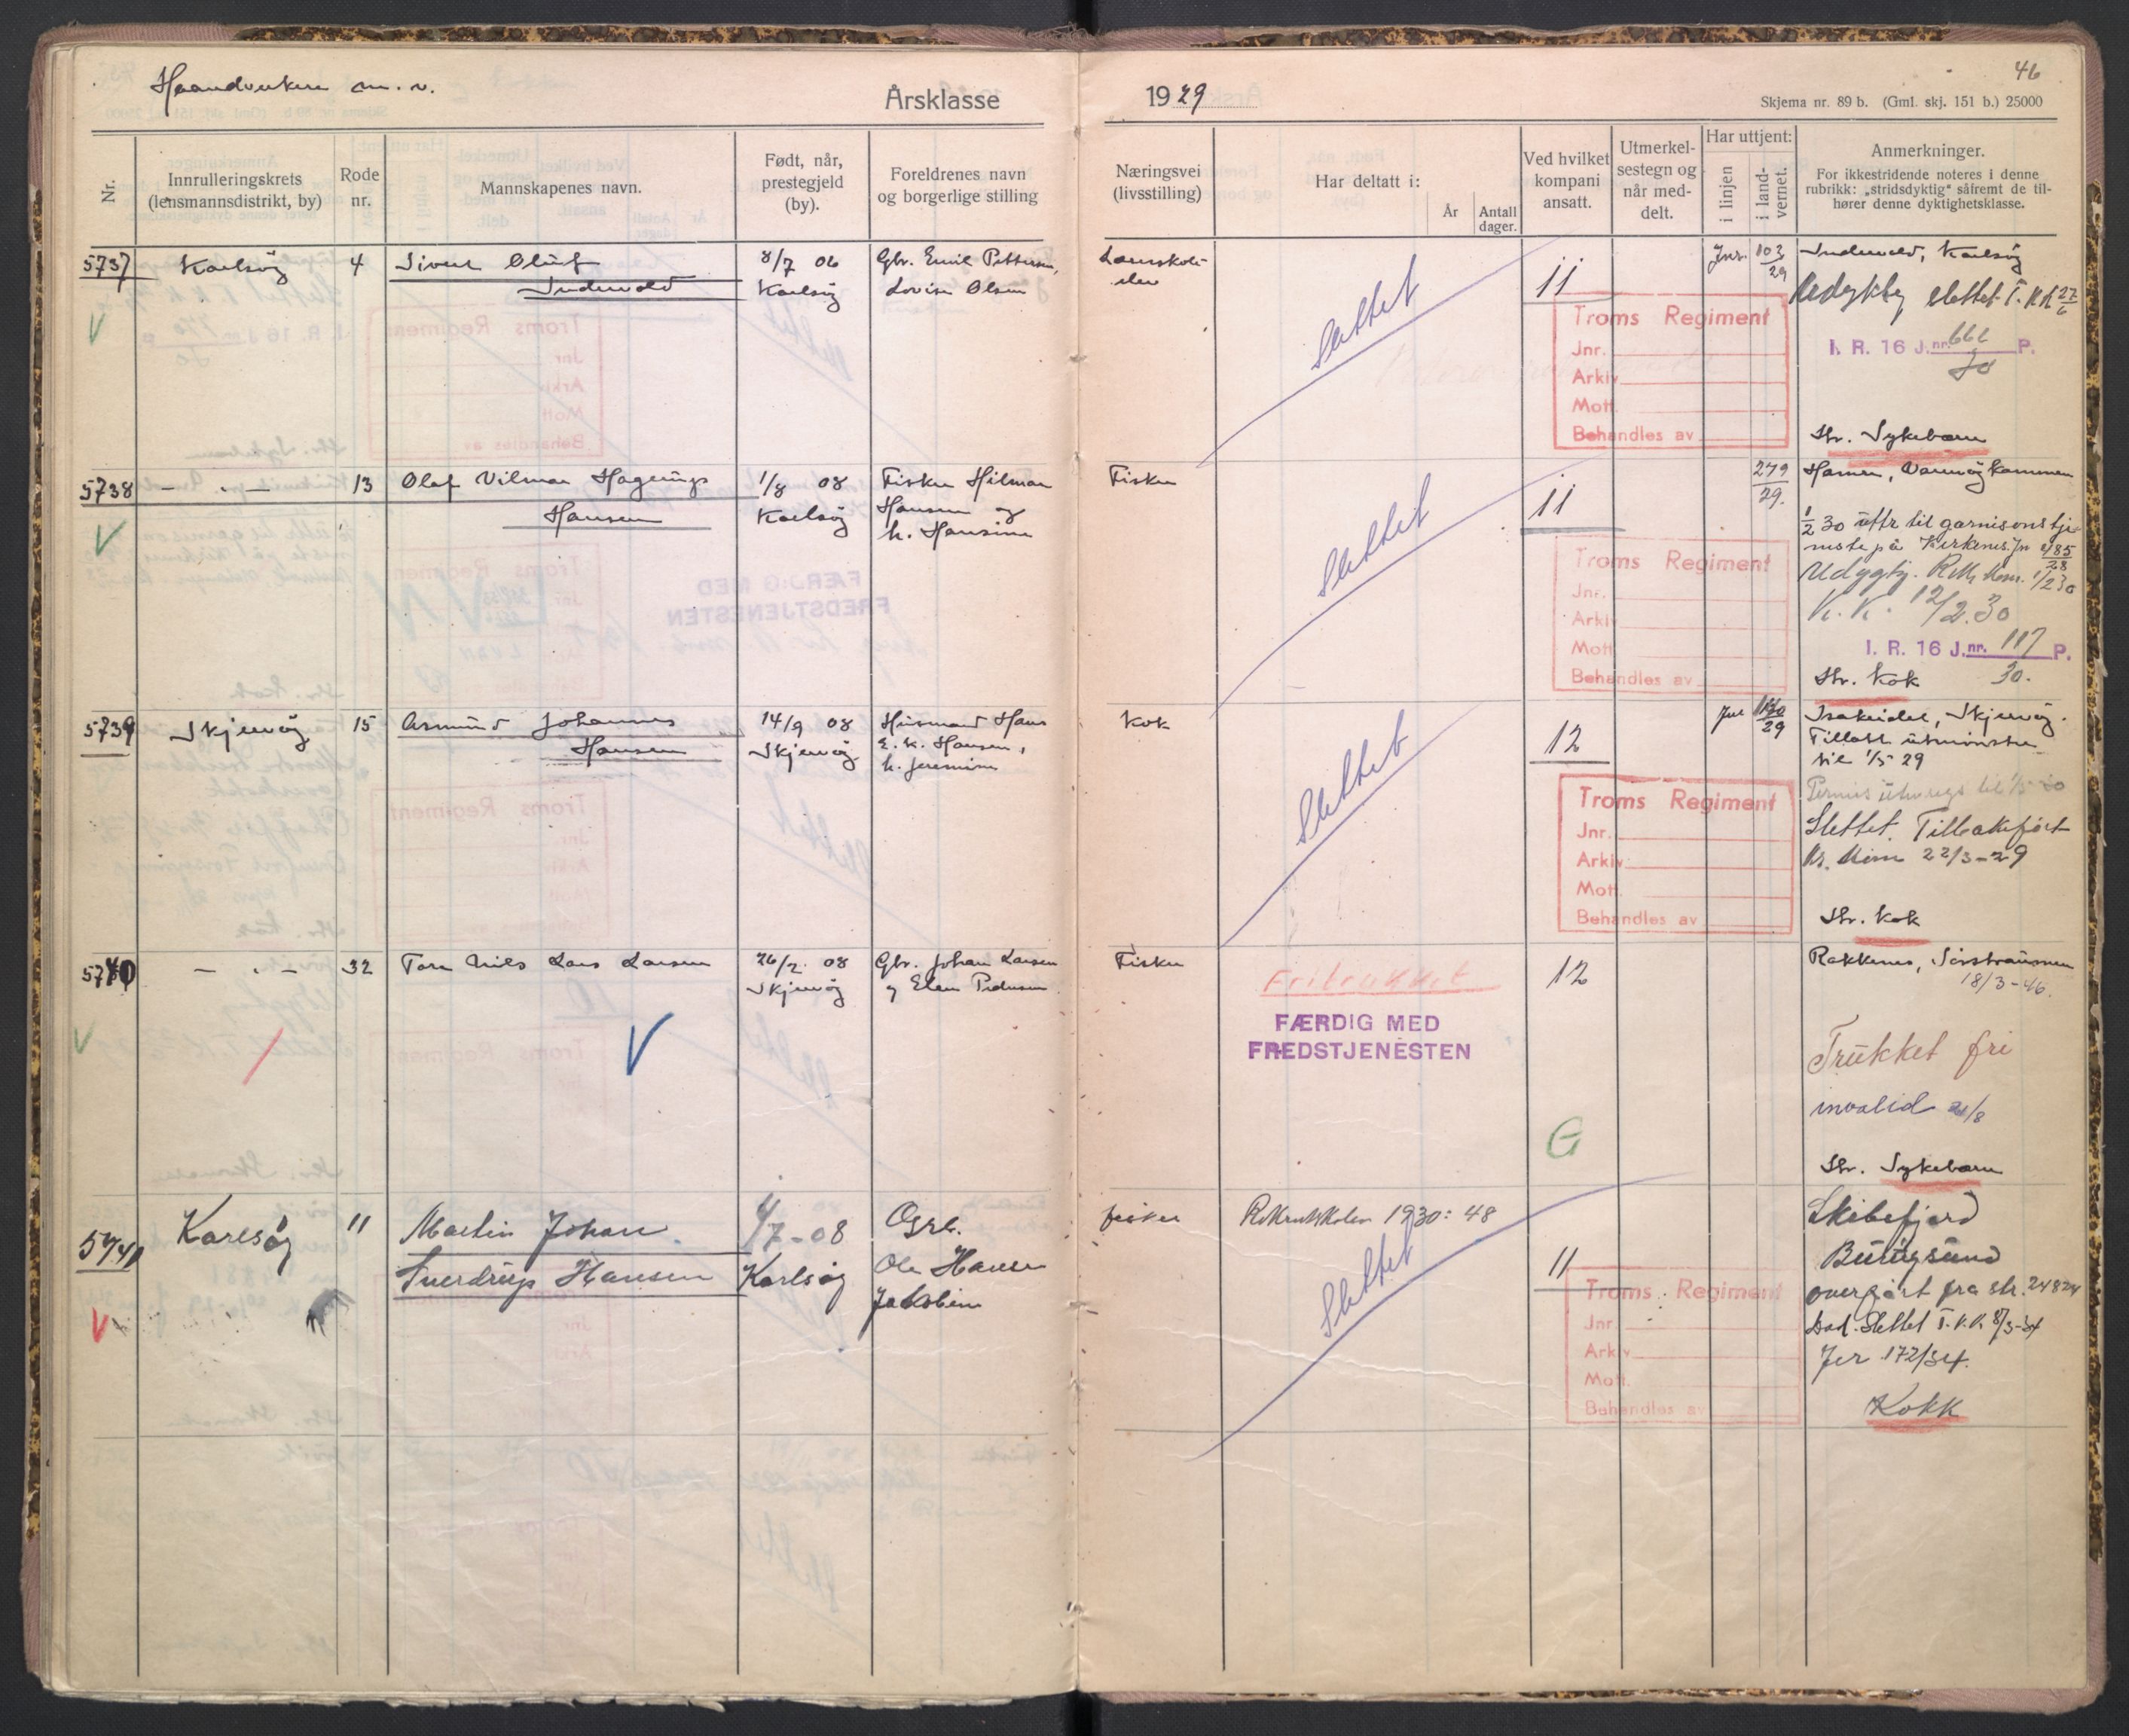 Haandverkere m. v.
Årsklasse
1929
46
Skjema nr. 89 b. (Gml. skj. 151 b.) 25000
Nr.
Innrulleringskrets
(lensmannsdistrikt, by)
Rode
nr.
Mannskapenes navn.
Født, når,
prestegjeld
(by).
Foreldrenes navn
og borgerlige stilling
Næringsvei
(livsstilling)
Har deltatt i:
År
Antall
dager.
Ved hvilket
kompani
ansatt.
Utmerkel-
sestegn og
når med-
delt.
Har uttjent:
i linjen
i land-
vernet.
Anmerkninger.
For ikkestridende noteres i denne
rubrikk: „stridsdyktig“ såfremt de til-
hører denne dyktighetsklasse.
5737
Karlsøy
4
Sivert Oluf
Indervold
8/7 06
Karlsøy
Gbr. Emil Pettersen,
Lovise Olsen
Lærerskole
elev
Slettet
11
Jnr. 103
29
Indervold, Karlsøy
Udyktig slettet T. KK 27
6
I. R. 16 J.nr. 662 P.
30
Str. Sykebærer
Troms Regiment
Jnr.
Arkiv
Mott.
Behandles av
5738
— " —
13
Olaf Vilmar Hagerup
Hansen
1/8 08
Karlsøy
Fisker Hilmar
Hansen og
h. Hansine
Fisker
Slettet
11
279
29.
Hamre, Vannøykammen
1
2 30 uttr til garnisonstje-
neste på Kirkenes. Jn 485
28
Udygtig. R.M. Mosn. 1/2 30
K. K. 12/2.30
I. R. 16 J.nr. 117 P.
30.
Str. Kok
Troms Regiment
Jnr.
Arkiv
Mott
Behandles av
5739
Skjervøy
15
Asmund Johannes
Hansen
14/9 08
Skjervøy
Husmand Hans
E. K. Hansen,
h. Jeremine
Kok
Slettet
12
29
Isakeidet, Skjervøy.
Tillatt utmønstre
til 1/5 29
Slettet. Tilbakeført
22/3-29
Str. Kok
Troms Regiment
Jnr.
Arkiv
Mott.
Behandles av
5740
— " —
32
Tore Nils Lars Larsen
26/2 08
Skjervøy
Gbr. Johan Larsen
og Elen Pedersen
Fisker
Fritrukket
FÆRDIG MED
FREDSTJENESTEN
12
G
Rakkenes, Sørstraumen
18/3-46.
Trukket fri
invalid
Str. Sykebærer
5741
Karlsøy
11
Martin Johan
Sverdrup Hansen
4/7-08
Karlsøy
Ole Hansen
Jakobine
fisker
Rekrutskolen 1930: 48
Slettet
11
Skibsfjord
overført fra str. 24824
Død. Slettet T.K.K. 8/3-34
Jnr 172/34.
Kokk
Troms Regiment
Jnr
Arkiv
Mott.
Behandles av